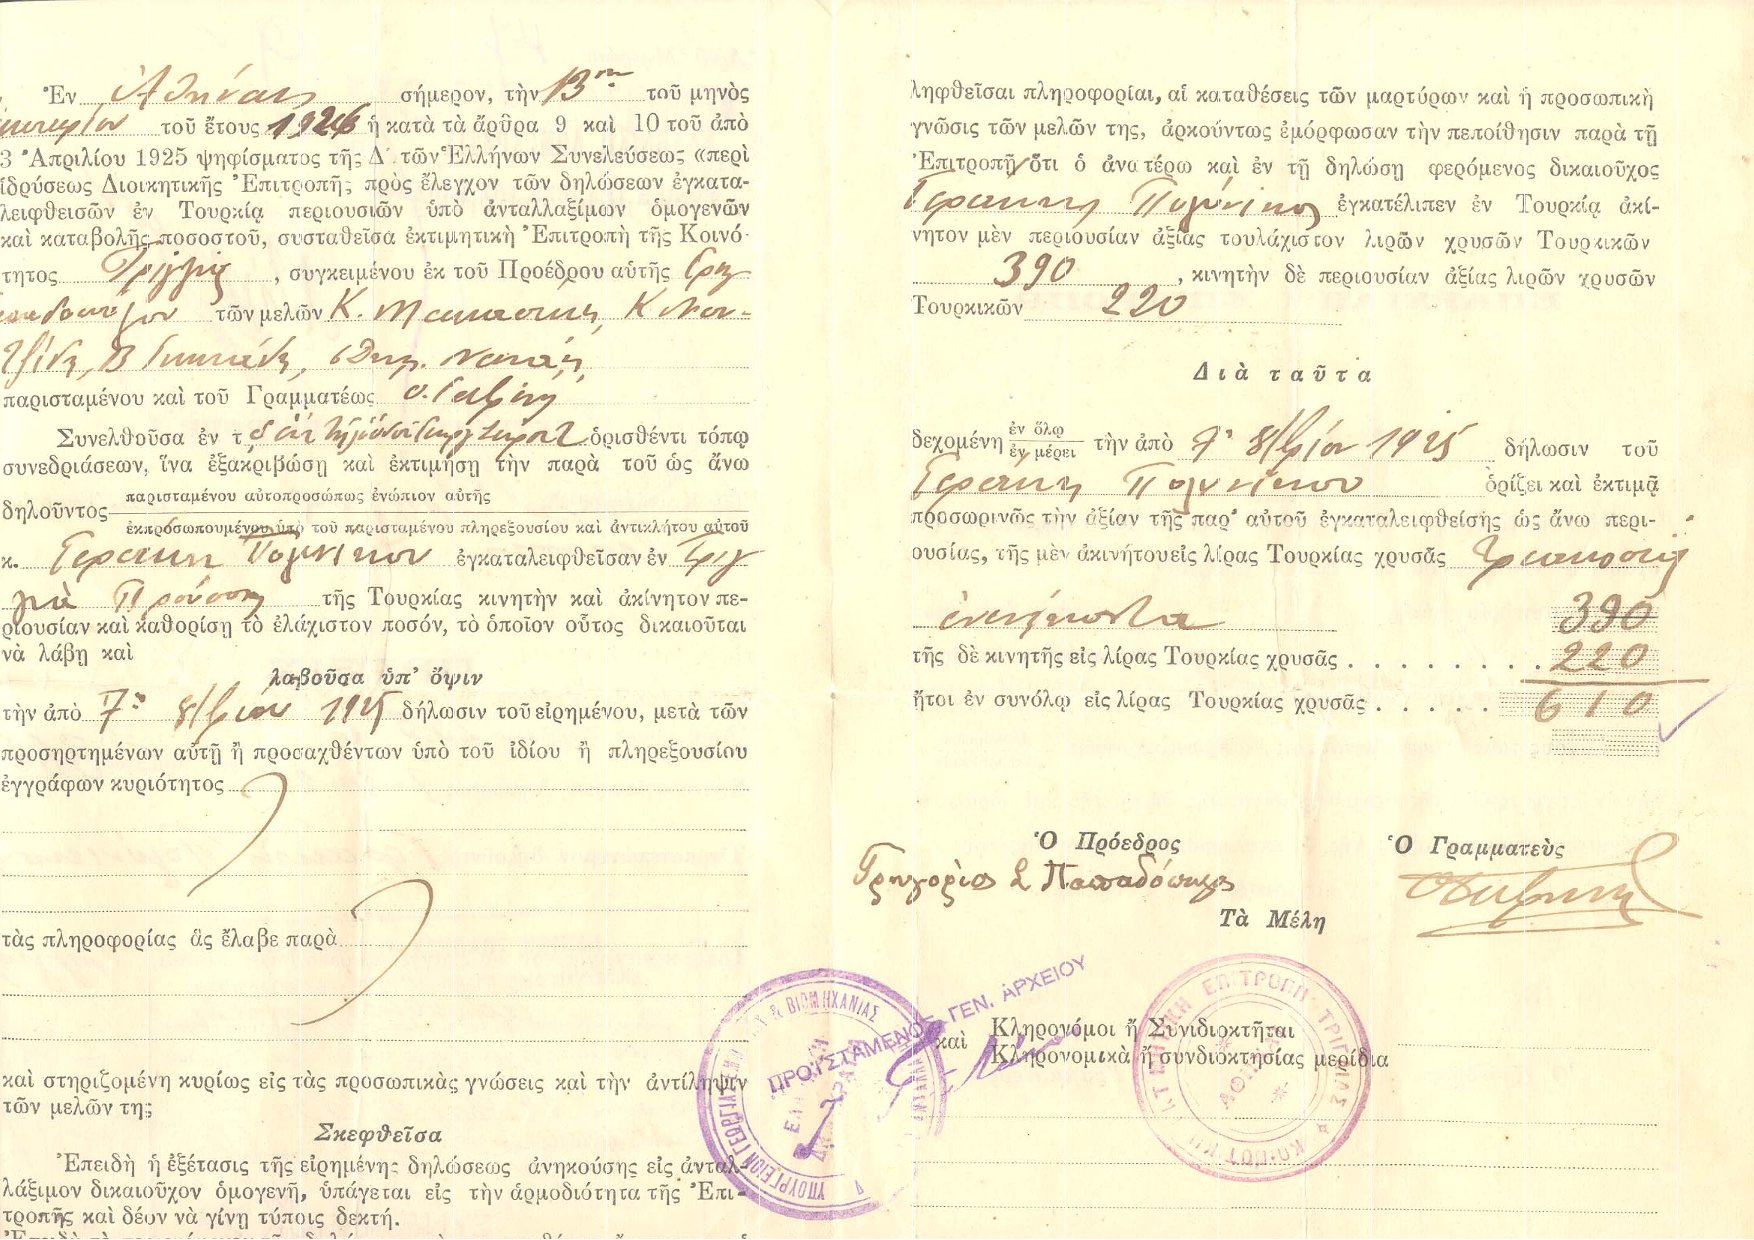 Ἐν Ἀθήναις σήμερον, τὴν 13ην τοῦ μηνὸς
τοῦ ἔτους 1926 ἡ κατὰ τὰ ἄρθρα 9 καὶ 10 τοῦ ἀπὸ
3 Ἀπριλίου 1925 ψηφίσματος τῆς Δ΄ τῶν Ἑλλήνων Συνελεύσεως «περὶ
ἱδρύσεως Διοικητικῆς Ἐπιτροπῆς πρὸς ἔλεγχον τῶν δηλώσεων ἐγκατα-
λειφθεισῶν ἐν Τουρκίᾳ περιουσιῶν ὑπὸ ἀνταλλαξίμων ὁμογενῶν
καὶ καταβολῆς ποσοστοῦ, συσταθεῖσα ἐκτιμητικὴ Ἐπιτροπὴ τῆς Κοινό-
τητος Τρίγλιας, συγκειμένου ἐκ τοῦ Προέδρου αὐτῆς Γρηγ.
τῶν μελῶν Κ.
παρισταμένου καὶ τοῦ Γραμματέως
Συνελθοῦσα ἐν τ ὁρισθέντι τόπῳ
συνεδριάσεων, ἵνα ἐξακριβώσῃ καὶ ἐκτιμήσῃ τὴν παρὰ τοῦ ὡς ἄνω
δηλοῦντος παρισταμένου αὐτοπροσώπως ἐνώπιον αὐτῆς
ἐκπροσωπουμένου ὑπὸ τοῦ παρισταμένου πληρεξουσίου καὶ ἀντικλήτου αὐτοῦ
κ. ἐγκαταλειφθεῖσαν ἐν Τρίγ
λια Προύσης τῆς Τουρκίας κινητὴν καὶ ἀκίνητον πε-
ριουσίαν καὶ καθορίσῃ τὸ ἐλάχιστον ποσόν, τὸ ὁποῖον οὗτος δικαιοῦται
νὰ λάβῃ καὶ
λαβοῦσα ὑπ' ὄψιν
τὴν ἀπὸ 7ης 8/βρίου 1925 δήλωσιν τοῦ εἰρημένου, μετὰ τῶν
προσηρτημένων αὐτῇ ἢ προσαχθέντων ὑπὸ τοῦ ἰδίου ἢ πληρεξουσίου
ἐγγράφων κυριότητος
τὰς πληροφορίας ἃς ἔλαβε παρὰ
καὶ στηριζομένη κυρίως εἰς τὰς προσωπικὰς γνώσεις καὶ τὴν ἀντίληψιν
τῶν μελῶν της
Σκεφθεῖσα
Ἐπειδὴ ἡ ἐξέτασις τῆς εἰρημένης δηλώσεως ἀνηκούσης εἰς ἀνταλ-
λάξιμον δικαιοῦχον ὁμογενῆ, ὑπάγεται εἰς τὴν ἁρμοδιότητα τῆς Ἐπι-
τροπῆς καὶ δέον νὰ γίνῃ τύποις δεκτή.
ληφθεῖσαι πληροφορίαι, αἱ καταθέσεις τῶν μαρτύρων καὶ ἡ προσωπικὴ
γνῶσις τῶν μελῶν της, ἀρκούντως ἐμόρφωσαν τὴν πεποίθησιν παρὰ τῇ
Ἐπιτροπῇ ὅτι ὁ ἀνωτέρω καὶ ἐν τῇ δηλώσῃ φερόμενος δικαιοῦχος
ἐγκατέλιπεν ἐν Τουρκίᾳ ἀκί-
νητον μὲν περιουσίαν ἀξίας τουλάχιστον λιρῶν χρυσῶν Τουρκικῶν
390, κινητὴν δὲ περιουσίαν ἀξίας λιρῶν χρυσῶν
Τουρκικῶν 220
Διὰ ταῦτα
δεχομένη ἐν ὅλῳ
ἐν μέρει τὴν ἀπὸ 7ης 8/βρίου 1925 δήλωσιν τοῦ
ὁρίζει καὶ ἐκτιμᾷ
προσωρινῶς τὴν ἀξίαν τῆς παρ' αὐτοῦ ἐγκαταλειφθείσης ὡς ἄνω περι-
ουσίας, τῆς μὲν ἀκινήτου εἰς λίρας Τουρκίας χρυσᾶς τριακοσίας
ἐνενήκοντα 390
τῆς δὲ κινητῆς εἰς λίρας Τουρκίας χρυσᾶς 220
ἤτοι ἐν συνόλῳ εἰς λίρας Τουρκίας χρυσᾶς 610
Ὁ Πρόεδρος Ὁ Γραμματεὺς
Γρηγόριος Παπαδόπουλος
Τὰ Μέλη
ΠΡΟΪΣΤΑΜΕΝΟΣ ΓΕΝ. ΑΡΧΕΙΟΥ
ΥΠΟΥΡΓΕΙΟΝ ΓΕΩΡΓΙΑΣ & ΒΙΟΜΗΧΑΝΙΑΣ
ΕΚΤΙΜΗΤΙΚΗ ΕΠΙΤΡΟΠΗ ΤΡΙΓΛΙΑΣ
ΑΘΗΝΑΙ
καὶ Κληρονόμοι ἢ Συνιδιοκτῆται
Κληρονομικὰ ἢ συνδιοκτησίας μερίδια